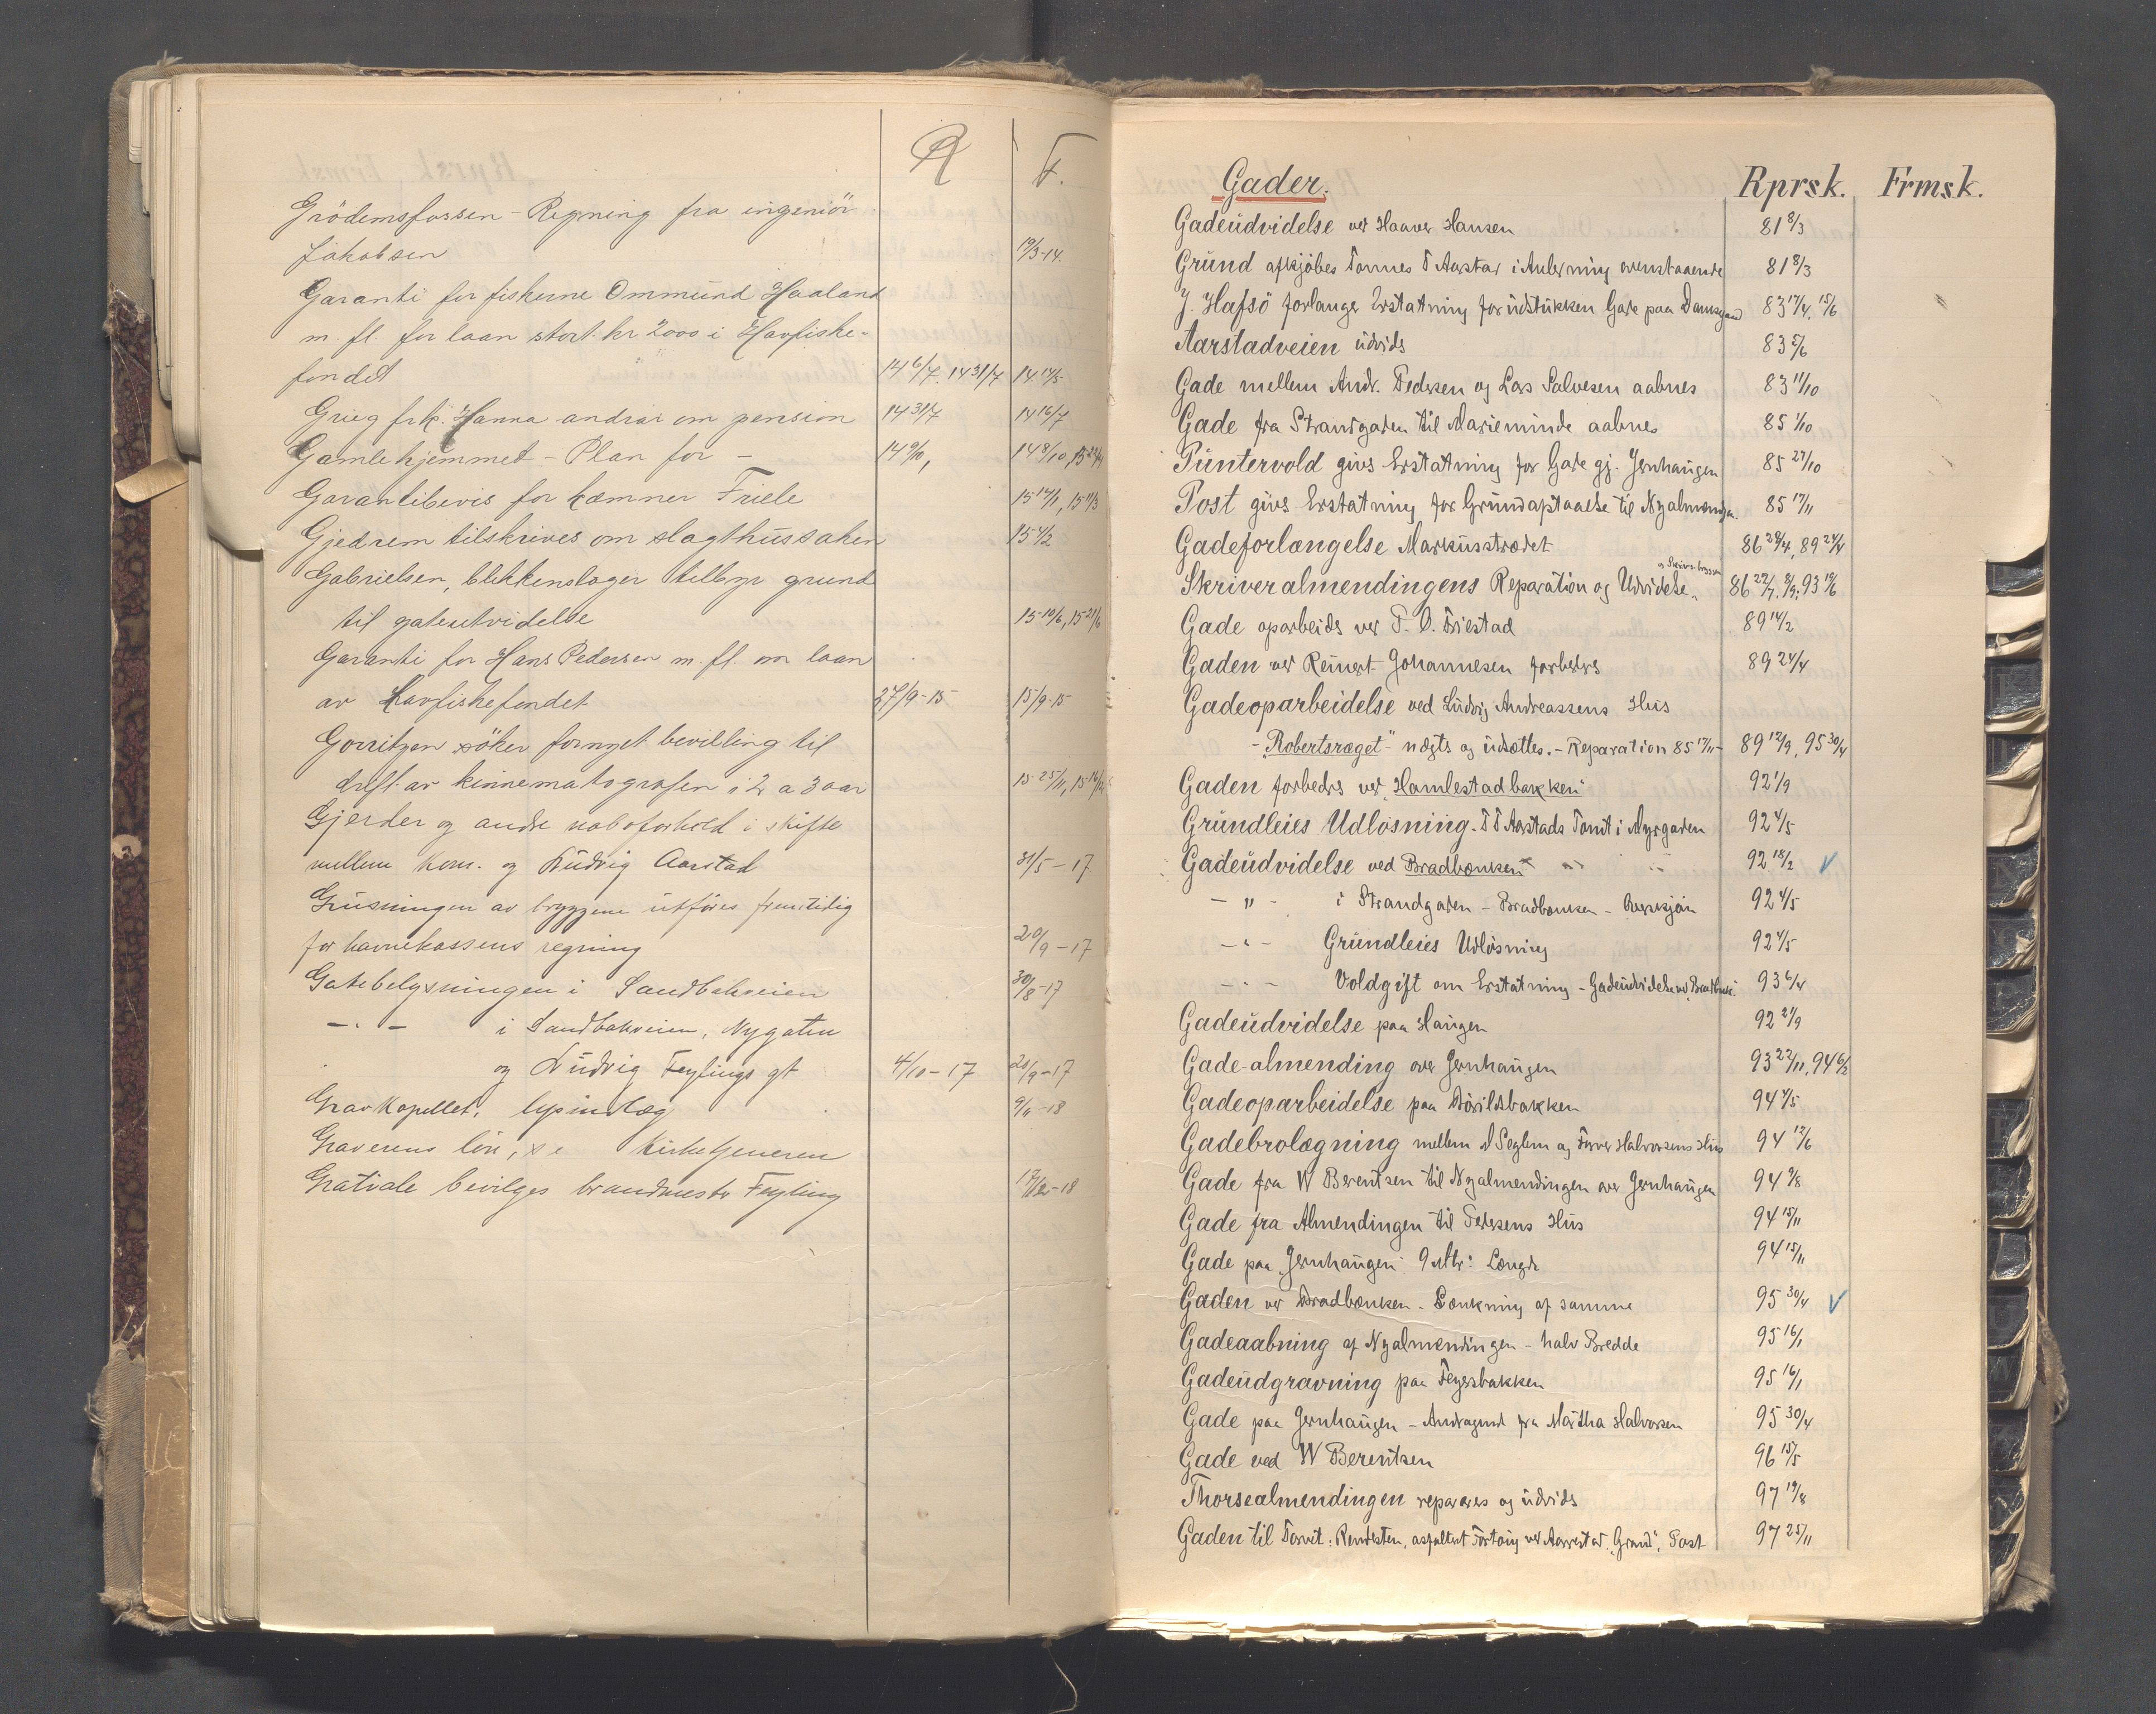 R F.
Grödemsfossen - Regning fra ingeniör
Jakobsen 19/3-14.
Garanti for fiskerne Ommund Haaland
m. fl. for laan stort kr 2000 i Havfiske-
fondet 14 6/7. 14 31/7 14 14/5
Grieg frk. Hanna andrar om pension 14 31/7 14 16/7
Gamlehjemmet - Plan for - 14 9/10, 14 8/10, 15 22/4
Garantibevis for kæmner Friele 15 14/1, 15 11/3
Gjedrem tilskrives om slagthussaken 15 4/2
Gabrielsen, blikkenslager tilbyr grund
til gateutvidelse 15 10/6, 15 21/6
Garanti for Hans Pedersen m. fl. om laan
av Havfiskefondet 27/9-15 15/9-15
Gorritzen söker fornyet bevilling til
drift av kinematografen i 2 a 3 aar 15 25/11, 15 16/12
Gjerder og andre naboforhold i skifte
mellem kom. og Ludvig Aarstad 31/5-17
Grusningen av bryggene utföres fremtidig
for havnekassens regning 20/9-17
Gatebelysningen i Sandbakveien 30/8-17
- " - i Sandbakveien, Nygaten
og Ludvig Feylings gt 4/10-17 20/9-17
Gravkapellet, lysindlæg 9/4-18
Graverens lön, se Kirketjeneren
Gratiale bevilges brandmester Feyling 17/12-18
Gader. Rprsk. Frmsk.
Gadeudvidelse ved Haaver Hansen 81 8/3
Grund afkjöbes Tonnes T Aarstad i Anledning ovenstaaende 81 8/3
J. Hafsö forlanger Erstatning for udstukken Gade paa Damsgaard 83 17/4, 15/6
Aarstadveien udvids 83 5/6
Gade mellem Andr. Pedersen og Lars Salvesen aabnes 83 11/10
Gade fra Strandgaden til Marieminde aabnes 85 1/10
Puntervold givs Erstatning for Gade gj. Jernhaugen 85 27/10
Post givs Erstatning for Grundafstaaelse til Nyalmendgn. 85 17/11
Gadeforlængelse Markusstrædet 86 28/4, 89 24/4
Skriveralmendingens Reparation og Udvidelse „ og Skriverbryggen 86 22/7, 8/9, 93 19/6
Gade oparbeids ved T. O. Friestad 89 14/2
Gaden ved Reinert Johannesen forbedres 89 24/4
Gadeoparbeidelse ved Ludvig Andreassens Hus
- „Robertsræget" - nægts og udsættes. - Reparation 85 17/11 - 89 12/9, 95 30/4
Gaden forbedrs ved „Hamlestadbakken" 92 1/9
Grundleies Udlösning - T T Aarstads Tomt i Nygaden 92 4/5
Gadeudvidelse ved Bradbænken " " 92 18/2
- " - i Strandgaden - Bradbænken - Overskjön 92 4/5
- " - Grundleies Udlösning 92 4/5
- " - Voldgift om Erstatning - Gadeudvidelse ved „Bradbænk" 93 6/4
Gadeudvidelse paa Haugen 92 2/9
Gade-almending over Jernhaugen 93 22/11, 94 6/2
Gadeoparbeidelse paa Börildsbakken 94 4/5
Gadebrolægning mellem Seglem og Halvorsens Hus 94 12/6
Gade fra W Berentsen til Nyalmendingen over Jernhaugen 94 9/8
Gade fra Almendingen til Pedersens Hus 94 15/11
Gade paa „Jernhaugen" 9 Mtr: Længde 94 15/11
Gaden ved Bradbænken - Sænkning af samme 95 30/4
Gadeaabning af Nyalmendingen - halv Bredde 95 16/1
Gadeudgravning paa Feyersbakken 95 16/1
Gade paa Jernhaugen - Andragende fra Martha Halvorsen 95 30/4
Gade ved W Berentsen 96 15/5
Thorsealmendingen repareres og udvids 97 19/8
Gaden til Torvet: Rendesten, asfalteret Fortoug ved Aarrestad, „Grand", Post 97 25/11